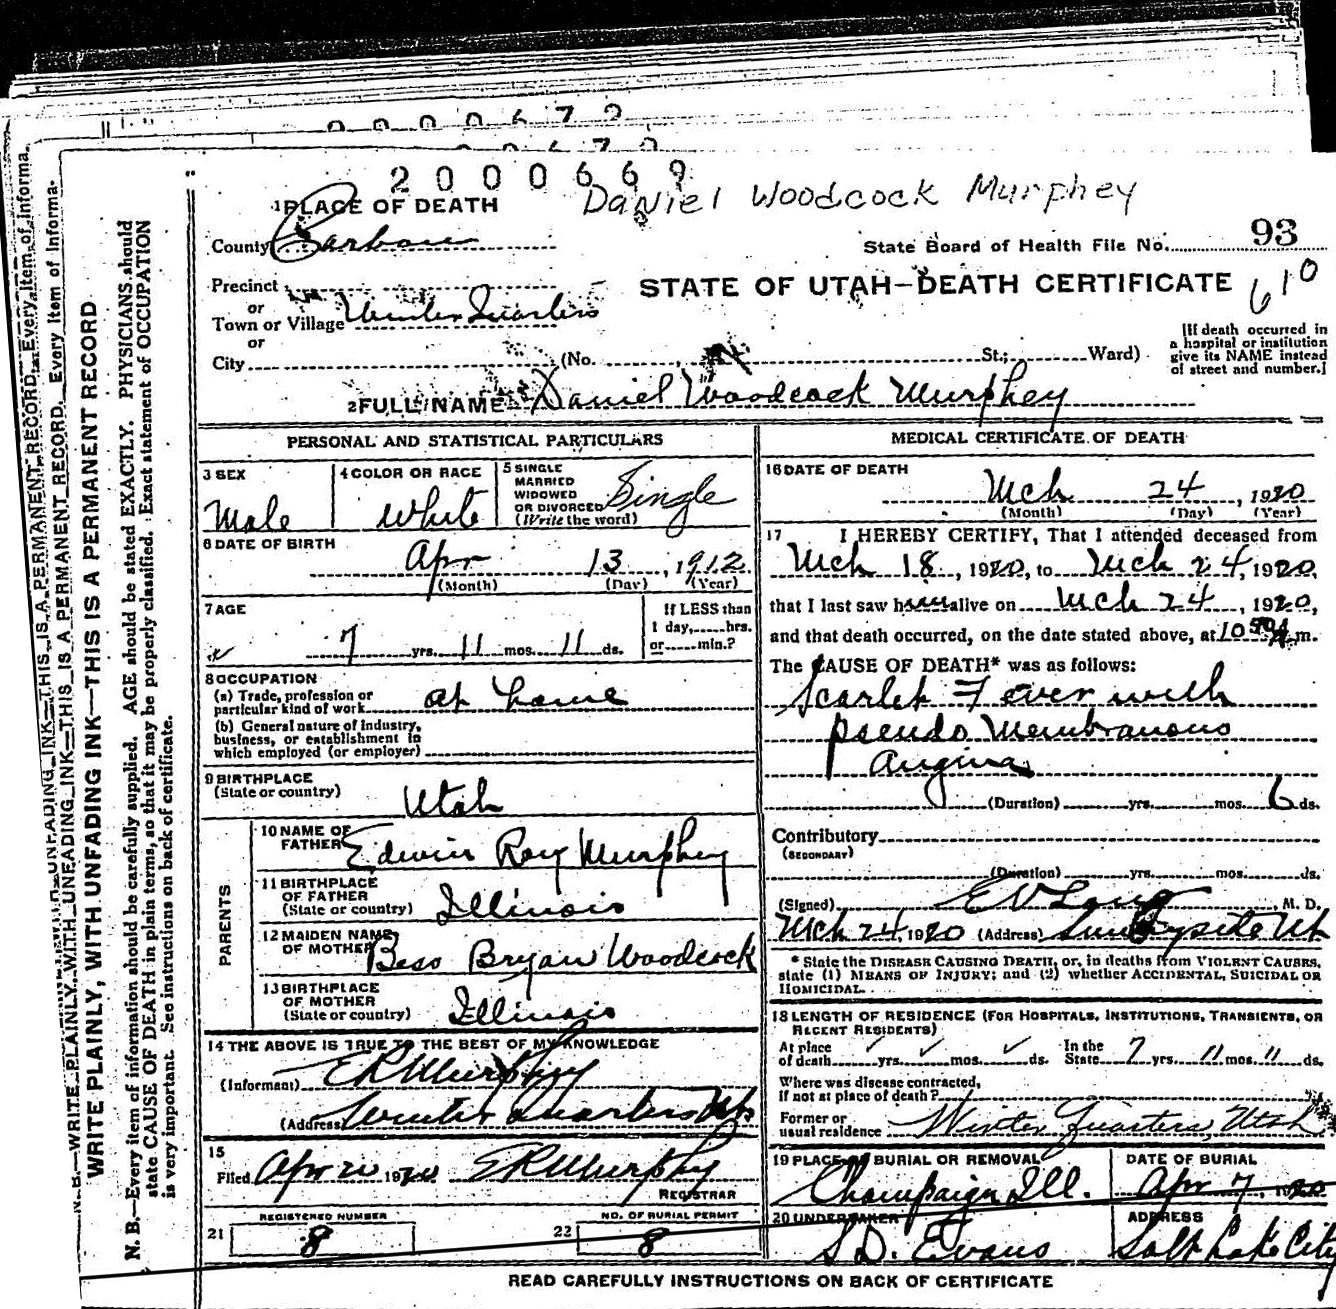 0 0 0 0 6 7 2
2 0 0 0 6 6 9
Daniel Woodcock Murphey
1 PLACE OF DEATH
County Carbon
State Board of Health File No. 93
Precinct
STATE OF UTAH—DEATH CERTIFICATE
610
or
Town or Village Winter Quarters
or
City (No. St.; Ward)
[If death occurred in
a hospital or institution
give its NAME instead
of street and number.]
2 FULL NAME Daniel Woodcock Murphey
PERSONAL AND STATISTICAL PARTICULARS
3 SEX
Male
4 COLOR OR RACE
White
5 SINGLE
MARRIED
WIDOWED
OR DIVORCED
(Write the word)
Single
6 DATE OF BIRTH
Apr 13, 1912
(Month) (Day) (Year)
7 AGE
7 yrs. 11 mos. 11 ds.
If LESS than
1 day, hrs.
or min.?
8 OCCUPATION
(a) Trade, profession or
particular kind of work at home
(b) General nature of industry,
business, or establishment in
which employed (or employer)
9 BIRTHPLACE
(State or country)
Utah
PARENTS
10 NAME OF
FATHER Edwin Roy Murphey
11 BIRTHPLACE
OF FATHER
(State or country) Illinois
12 MAIDEN NAME
OF MOTHER Bess Bryan Woodcock
13 BIRTHPLACE
OF MOTHER
(State or country) Illinois
14 THE ABOVE IS TRUE TO THE BEST OF MY KNOWLEDGE
(Informant) E R Murphey
(Address) Winter Quarters Ut
15
Filed Apr 20 1920 E R Murphey
REGISTRAR
REGISTERED NUMBER
21 8
NO. OF BURIAL PERMIT
22 8
MEDICAL CERTIFICATE OF DEATH
16 DATE OF DEATH
Mch 24, 1920
(Month) (Day) (Year)
17 I HEREBY CERTIFY, That I attended deceased from
Mch 18, 1920, to Mch 24, 1920,
that I last saw him alive on Mch 24, 1920,
and that death occurred, on the date stated above, at 10 A m.
The CAUSE OF DEATH* was as follows:
Scarlet Fever with
pseudo Membranous
Angina
(Duration) yrs. mos. 6 ds.
Contributory
(SECONDARY)
(Duration) yrs. mos. ds.
(Signed) E V Long, M. D.
Mch 24, 1920 (Address) Sunnyside Ut
* State the DISEASE CAUSING DEATH, or, in deaths from VIOLENT CAUSES,
state (1) MEANS OF INJURY; and (2) whether ACCIDENTAL, SUICIDAL OR
HOMICIDAL.
18 LENGTH OF RESIDENCE (FOR HOSPITALS, INSTITUTIONS, TRANSIENTS, OR
RECENT RESIDENTS)
At place
of death yrs. mos. ds.
In the
State 7 yrs. 11 mos. 11 ds.
Where was disease contracted,
if not at place of death?
Former or
usual residence Winter Quarters, Utah
19 PLACE OF BURIAL OR REMOVAL
Champaign Ill.
DATE OF BURIAL
Apr 7, 1920
20 UNDERTAKER
S. D. Evans
ADDRESS
Salt Lake City
READ CAREFULLY INSTRUCTIONS ON BACK OF CERTIFICATE
WRITE PLAINLY, WITH UNFADING INK—THIS IS A PERMANENT RECORD
N. B.—Every item of information should be carefully supplied. AGE should be stated EXACTLY. PHYSICIANS should
state CAUSE OF DEATH in plain terms, so that it may be properly classified. Exact statement of OCCUPATION
is very important. See instructions on back of certificate.